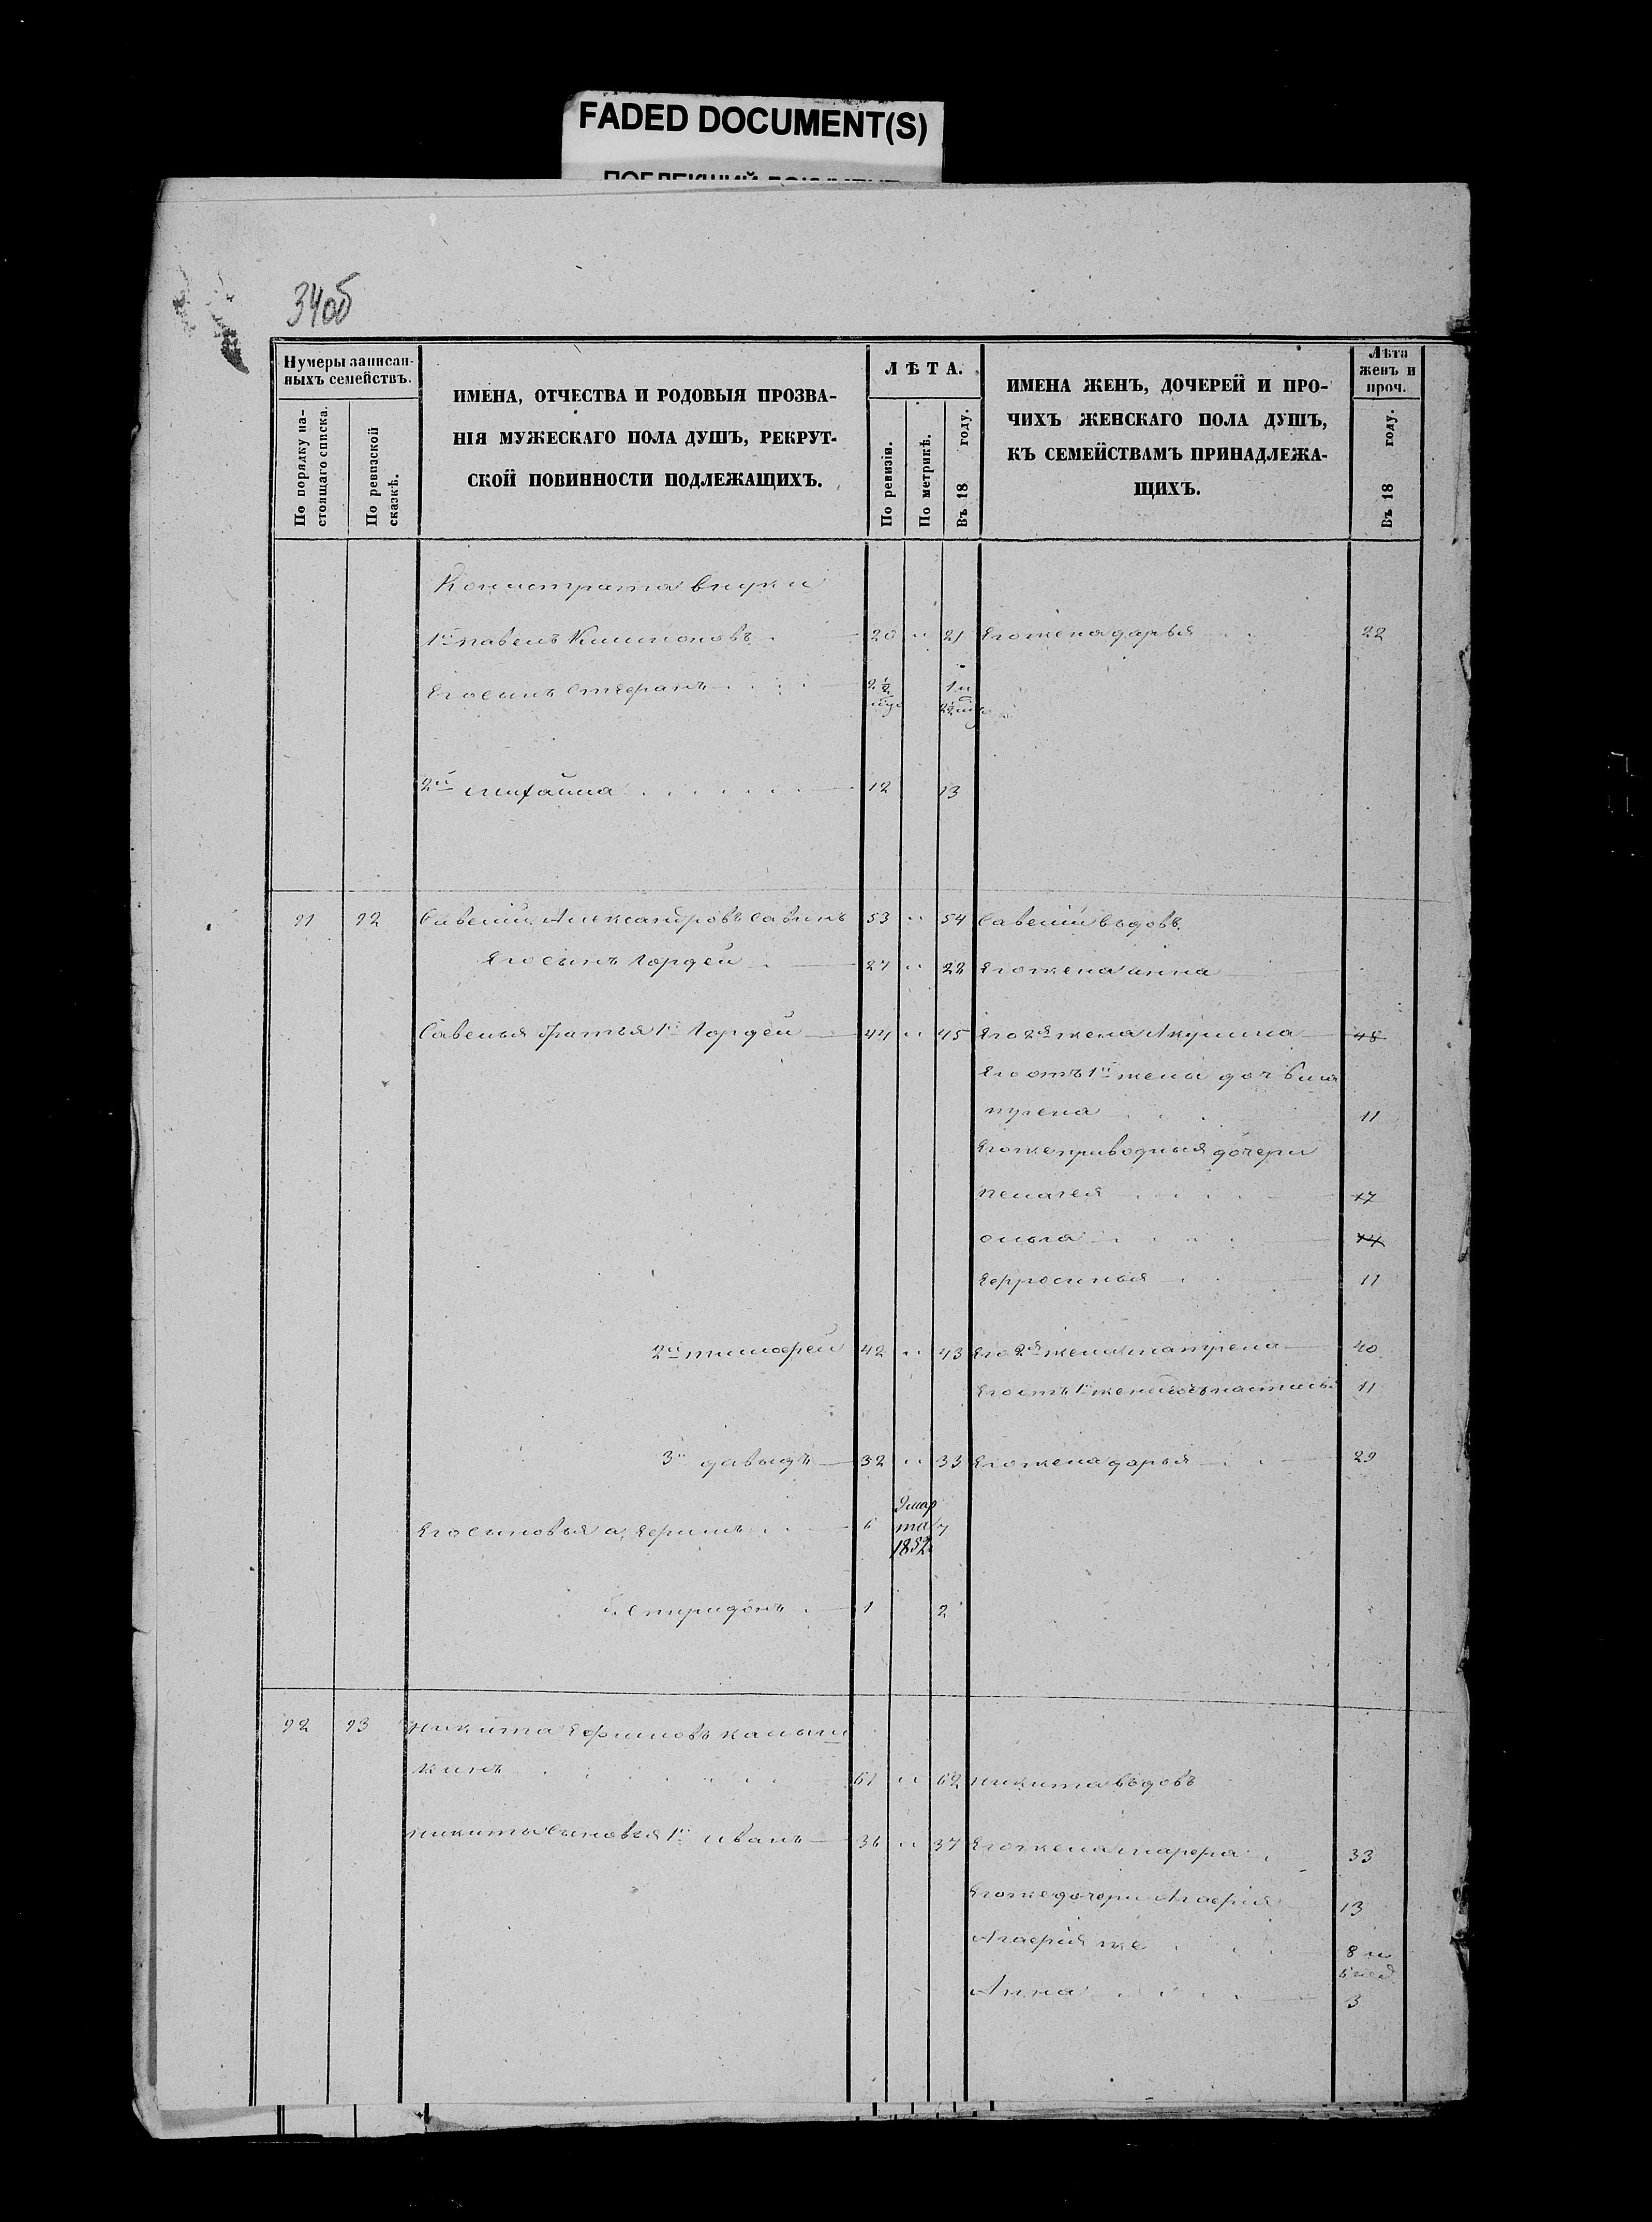 FADED DOCUMENT(S)
34об
Нумеры записан-
ныхъ семействъ.
По порядку на-
стоящаго списка.
По ревизской
сказкѣ.
ИМЕНА, ОТЧЕСТВА И РОДОВЫЯ ПРОЗВА-
НІЯ МУЖЕСКАГО ПОЛА ДУШЪ, РЕКРУТ-
СКОЙ ПОВИННОСТИ ПОДЛЕЖАЩИХЪ.
ЛѢТА.
По ревизіи.
По метрикѣ.
Въ 18 году.
ИМЕНА ЖЕНЪ, ДОЧЕРЕЙ И ПРО-
ЧИХЪ ЖЕНСКАГО ПОЛА ДУШЪ,
КЪ СЕМЕЙСТВАМЪ ПРИНАДЛЕЖА-
ЩИХЪ.
Лѣта
женъ и
проч.
Въ 18 году.
внуки
1й павелъ 20 " 21 Его жена дарья 22
Его сынъ Стефанъ 2½ 1 и
2й михайла 12 13
91 92 Савелий Александровъ Савинъ 53 " 54 Савелий вдовъ
Его сынъ Гордей 27 " 28 Его жена анна
Савелья братья 1й Гордей 44 " 45 Его 2я жена Акулина 48
Его отъ 1й жены дочь
11
Его же приводныя дочери
пелагея 17
ольга 14
Ефросинья 11
2й тимофей 42 " 43 Его 2я жена матрена 40
Его отъ 1й жены дочь настасья 11
3й давыдъ 32 " 33 Его жена дарья 29
Его сыновья а, Ефимъ 6 9 мар
та 7
1852
б, Спиридонъ 1 2
92 93 Никита Ефимовъ калыш
кинъ 61 " 62 никита вдовъ
никиты сыновья 1й иванъ 36 " 37 Его жена марфа 33
Его же дочери Агафия 13
Агафия же 8 и
6 нед
Анна 3